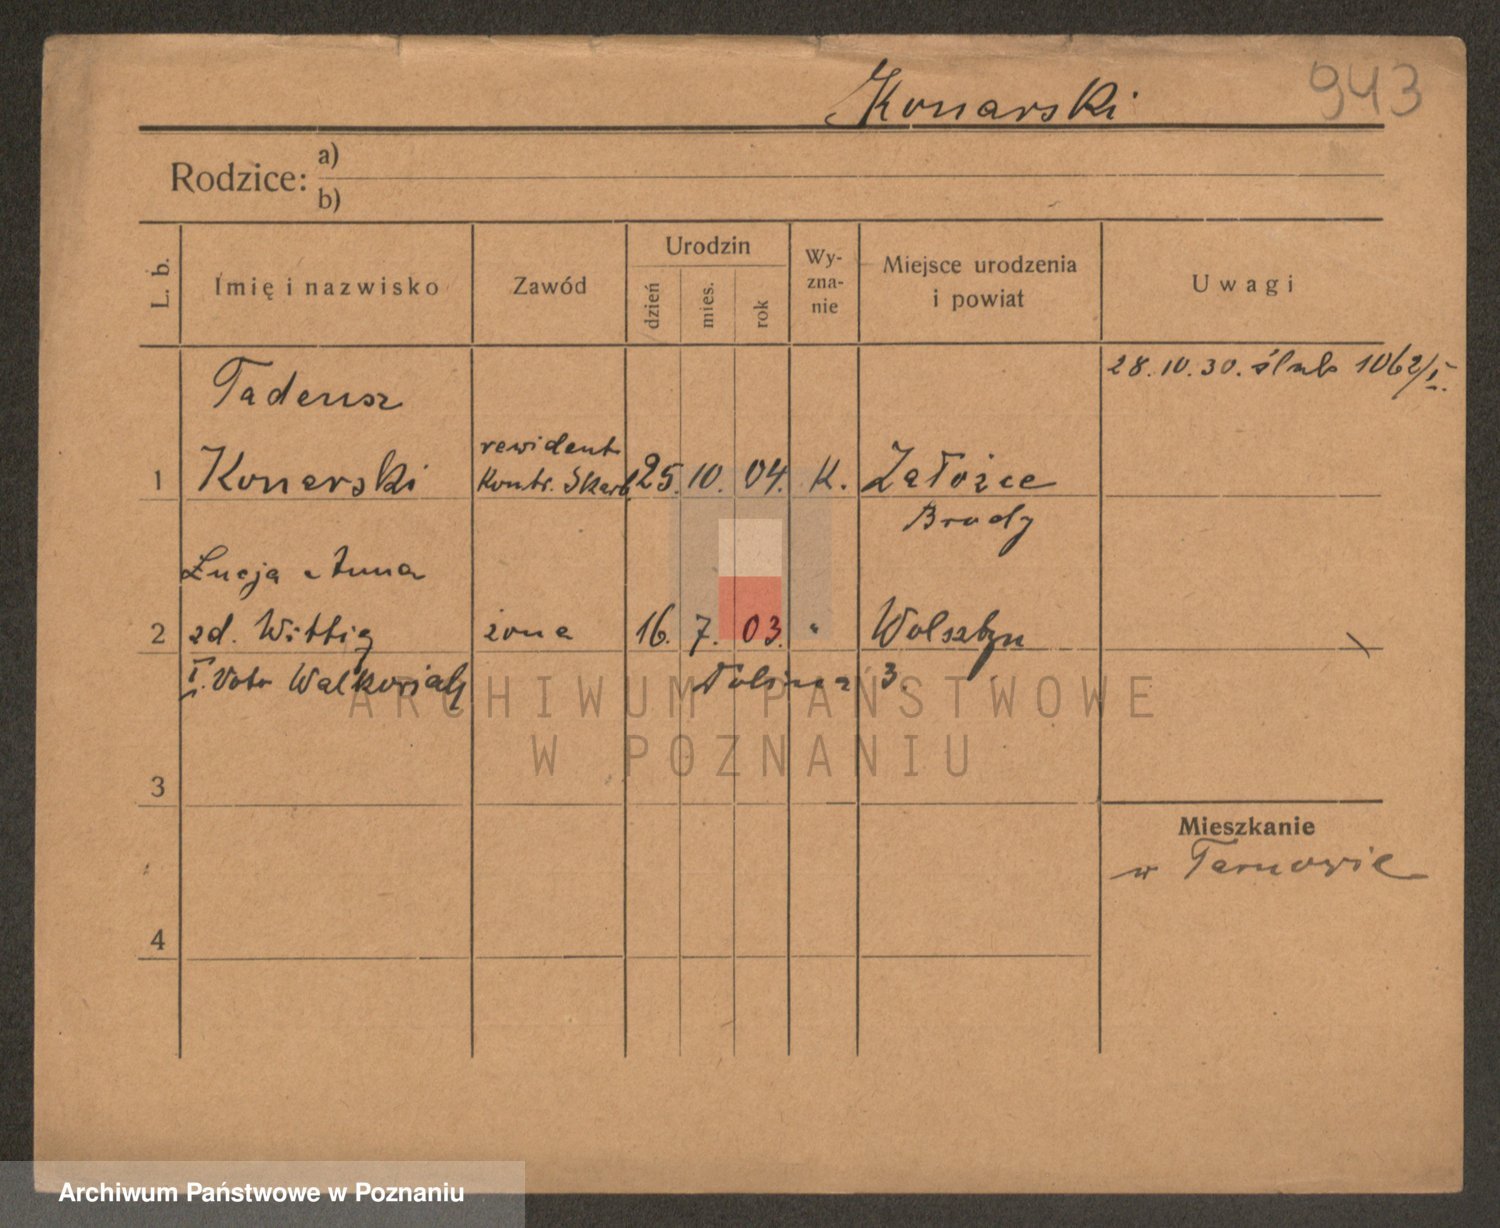 Konarski 943
Rodzice: a)
b)
L. b.
Imię i nazwisko
Zawód
Urodzin
dzień
mies.
rok
Wy-
zna-
nie
Miejsce urodzenia
i powiat
Uwagi
28.10.30. ślub 1062/I.
Tadeusz
1 Konarski
rewident
Kontr. Skarb.
25. 10. 04. K. Załoźce
Brody
Łucja Anna
2 zd. Wittig żona 16. 7. 03. " Wolsztyn
I. Voto 3.
3
4
Mieszkanie
w
ARCHIWUM PAŃSTWOWE
W POZNANIU
Archiwum Państwowe w Poznaniu